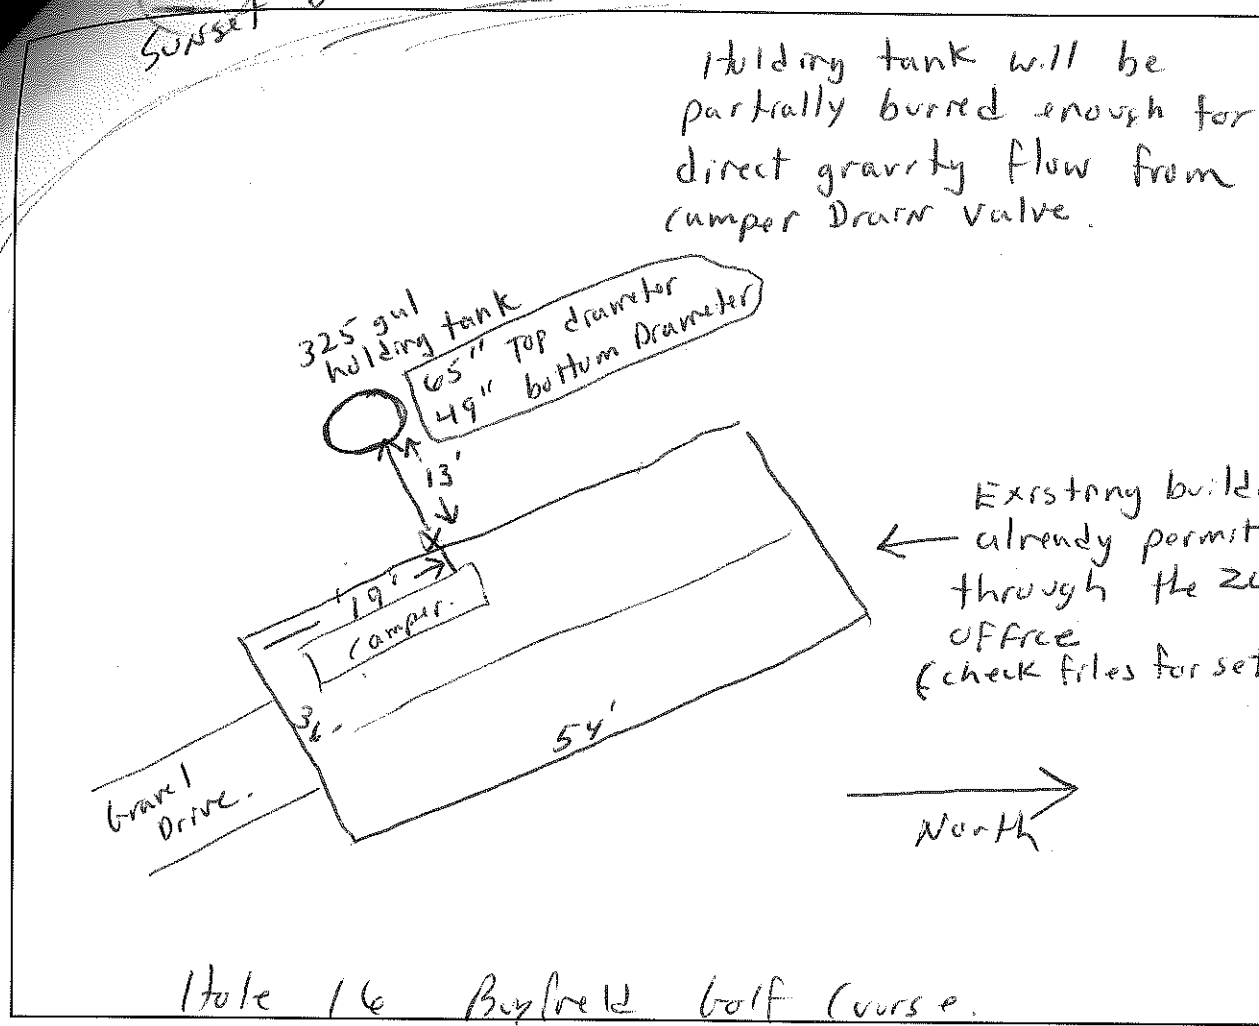 Sunset
Holding tank will be
partially burred enough for
direct gravity flow from
camper Drain valve.
325 gal
holding tank
65" Top diameter
49" bottom Diameter
13'
19'
camper.
Existing build
already permit
through the
office
(check files for set
54'
Gravel
Drive.
North
Hole 16 Bayfield Golf Course.